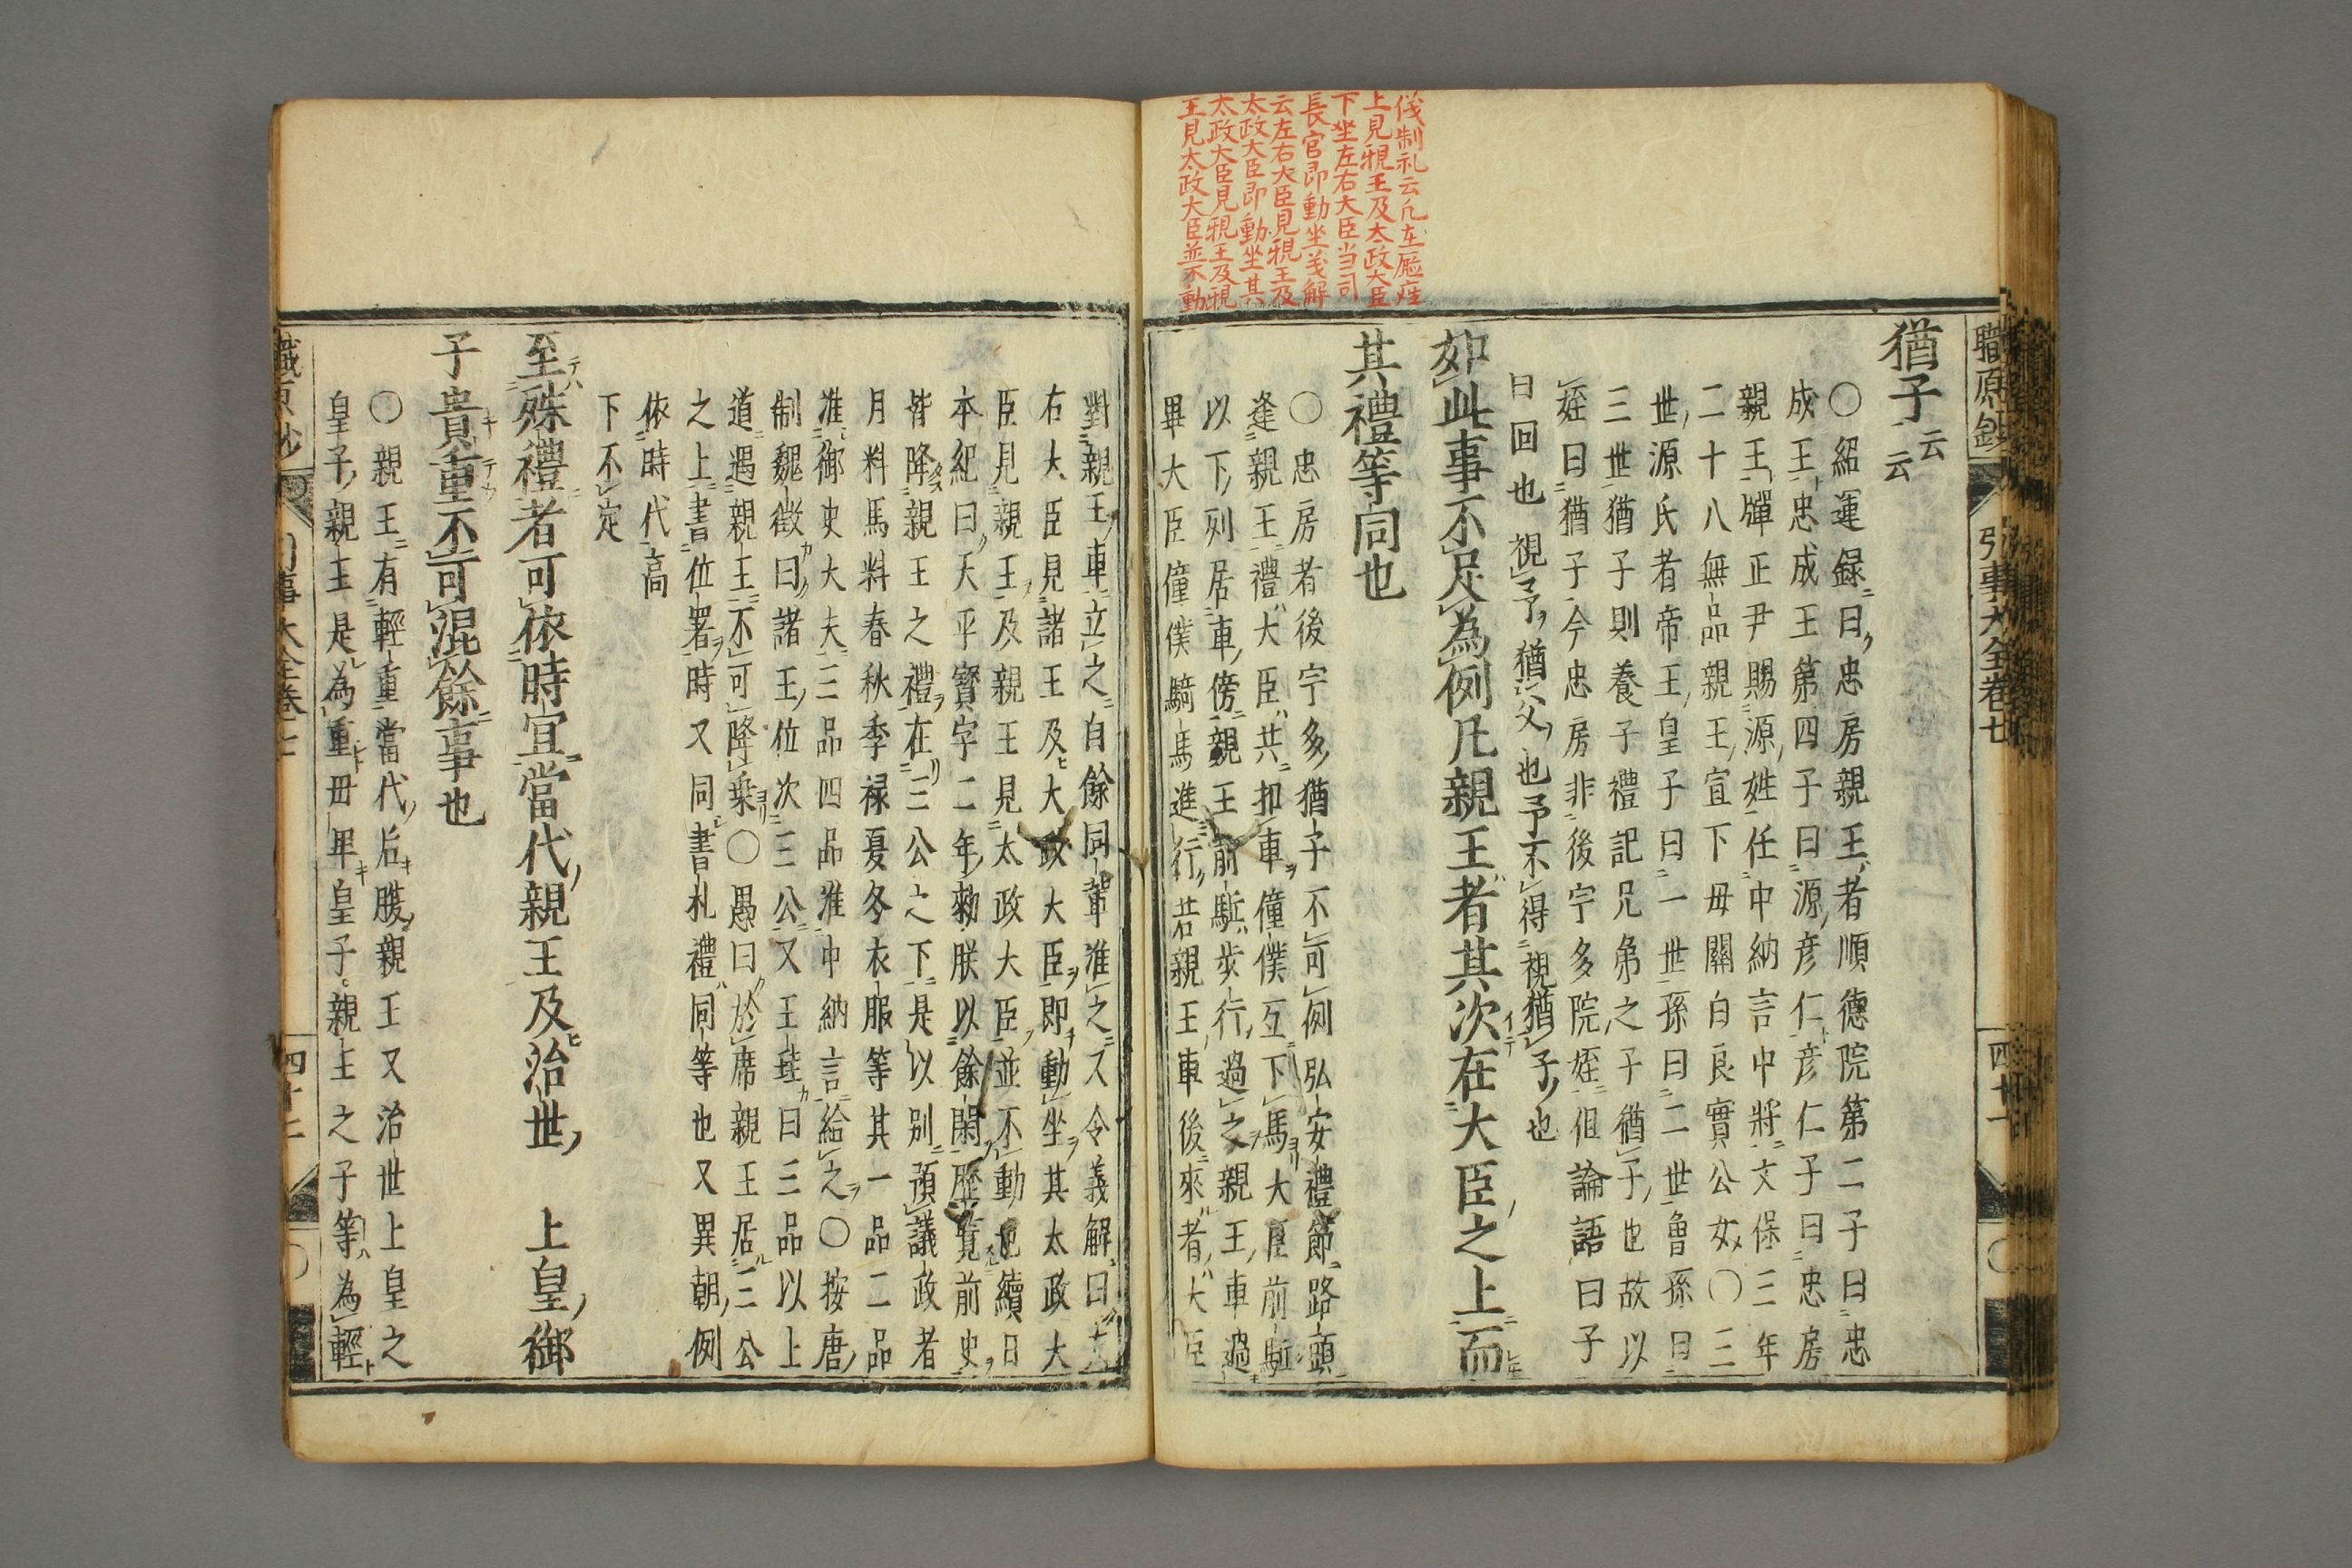 職原鈔 引事大全卷七 四十一
儀制礼云凡在廳座
上見親王及太政大臣
下坐左右大臣当司
長官即動坐義解
云左右大臣見親王及
太政大臣即動坐其
太政大臣見親王及親
王見太政大臣並不動
猶子云云
〇紹運録曰忠房親王者順德院第二子曰忠
成王忠成王第四子曰源彦仁彦仁子曰忠房
親王彈正尹賜源姓任中納言中將文保三年
二十八無品親王宣下母關白良實公女〇三
世源氏者帝王皇子曰一世孫曰二世曾孫曰
三世猶子則養子禮記兄弟之子猶子也故以
姪曰猶子今忠房非後宇多院姪但論語曰子
曰回也視予猶父也予不得視猶子也
如此事不足為例凡親王者其次在大臣之上而
其禮等同也
〇忠房者後宇多猶子不可例弘安禮節路頭
逢親王禮大臣共扣車僮僕互下馬大臣前駈
以下列居車傍親王前駈步行過之親王車過
畢大臣僮僕騎馬進行若親王車後來者大臣
對親王車立之自餘同輩准之又令義解曰左
右大臣見諸王及大政大臣即動坐其太政大
臣見親王及親王見太政大臣並不動也續日
本紀曰天平寳字二年勅朕以餘閑歷覽前史
皆降親王之禮在三公之下是以別預議政者
月料馬料春秋季禄夏冬衣服等其一品二品
准御史大夫三品四品准中納言給之〇按唐
制魏徵曰諸王位次三公又王珪曰三品以上
道遇親王不可降乗〇愚曰於席親王居三公
之上書位署時又同書札禮同等也又異朝例
依時代高
下不定
至殊禮者可依時宜當代親王及治世 上皇御
子貴重不可混餘事也
〇親王有輕重當代后腹親王又治世上皇之
皇子親王是為重母卑皇子親王之子等為輕
四十二